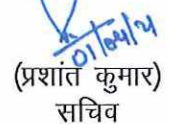 01/04/21
(प्रशांत कुमार)
सचिव